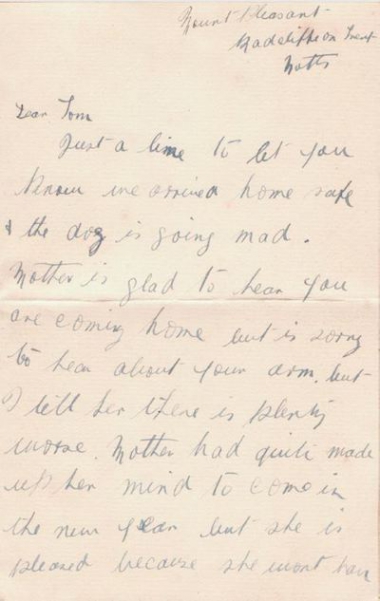 Mount Pleasant
Radcliffe on Trent
Notts
Dear Tom
Just a line to let you
know we arrived home safe
& the dog is going mad.
Mother is glad to hear you
are coming home but is sorry
to hear about your arm, but
I tell her there is plenty
worse. Mother had quite made
up her mind to come in
the new year but she is
pleased because she wont have